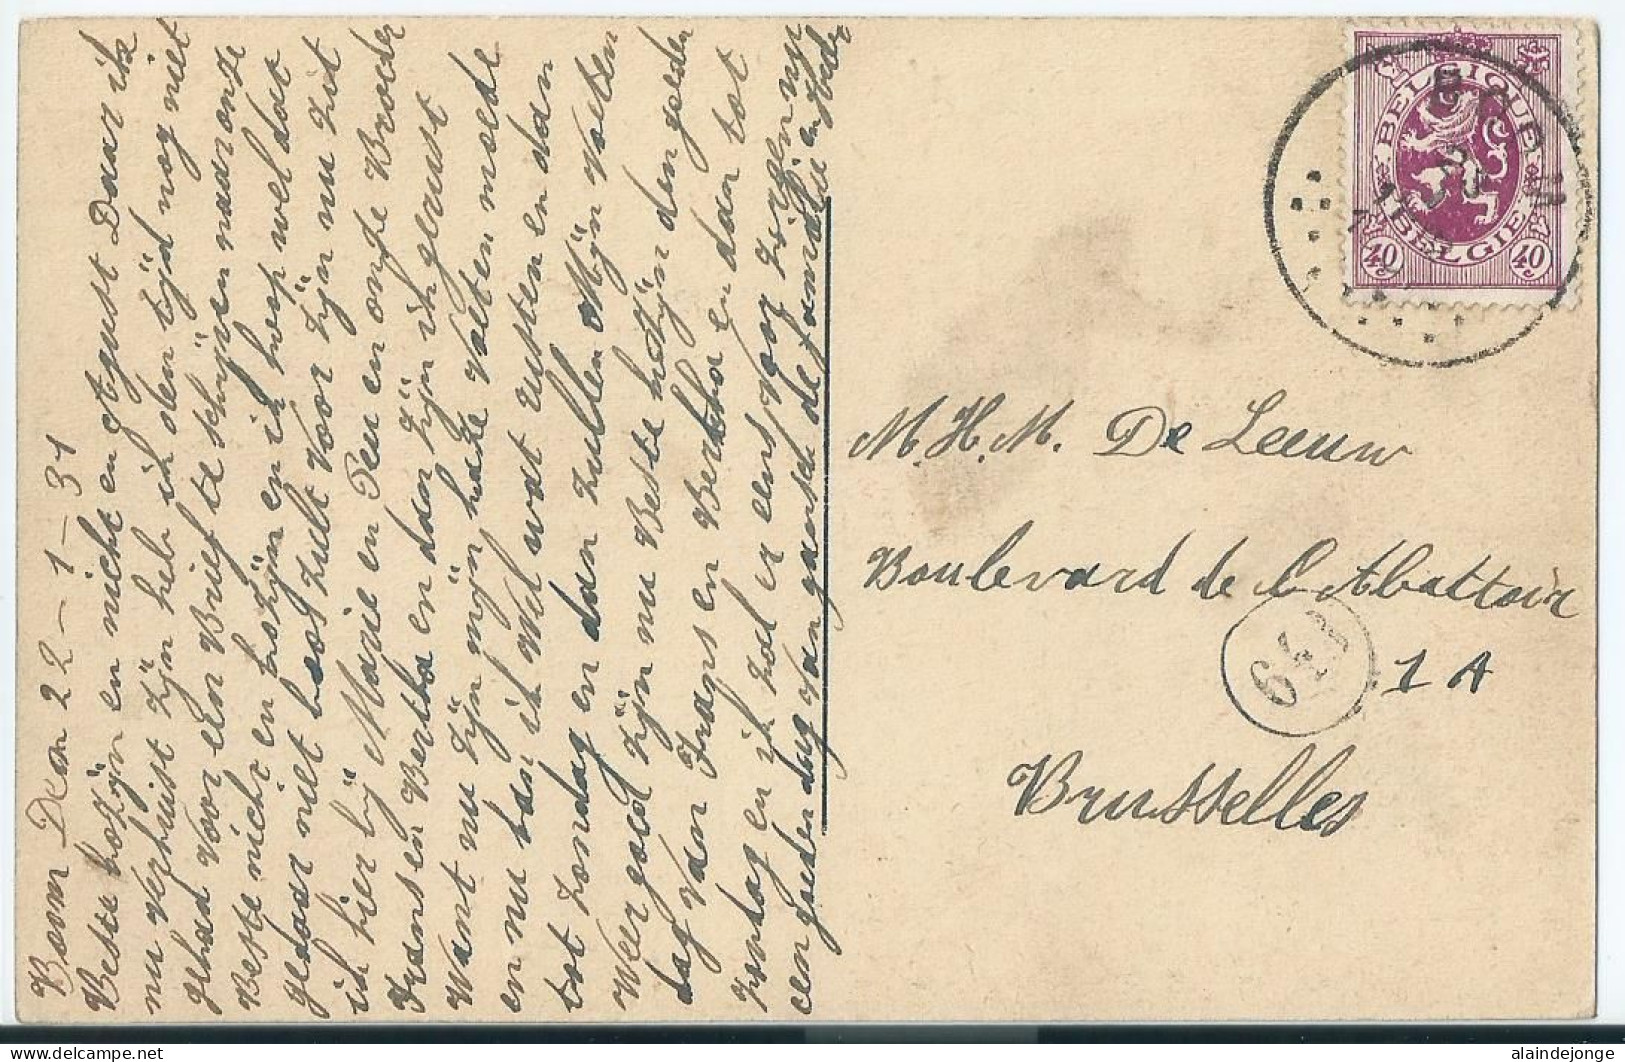 Boom Den 22 - 1 - 31
Beste kozijn en nicht en August Daar ik
nu verhuist zijn heb ik den tijd nog niet
gehad voor een Brief te schrijven naar onze
Beste nicht en kozijn en ik hoop wel dat
gedaar niet boos zult voor zijn nu zit
ik hier bij Marie en Peu en onze Broeder
Fransen Bertha en daar zijn ik gerust
Want nu zijn mijn voeten moede
en nu kan ik wel wat rusten en dan
tot zondag en dan zullen mijn voeten
Weer goed zijn nu Beste kozijn den goeden
dag van Frans en Bertha en dan tot
zondag en ik zal er eens voor zijn nu
een goeden dag van gansch de familie en
M. H. M. De Leeuw
Boulevard de l'Abattoir
1 A
Brusselles
BELGIQUE
BELGIE
40c
40c
BOOM
649
alaindejonge